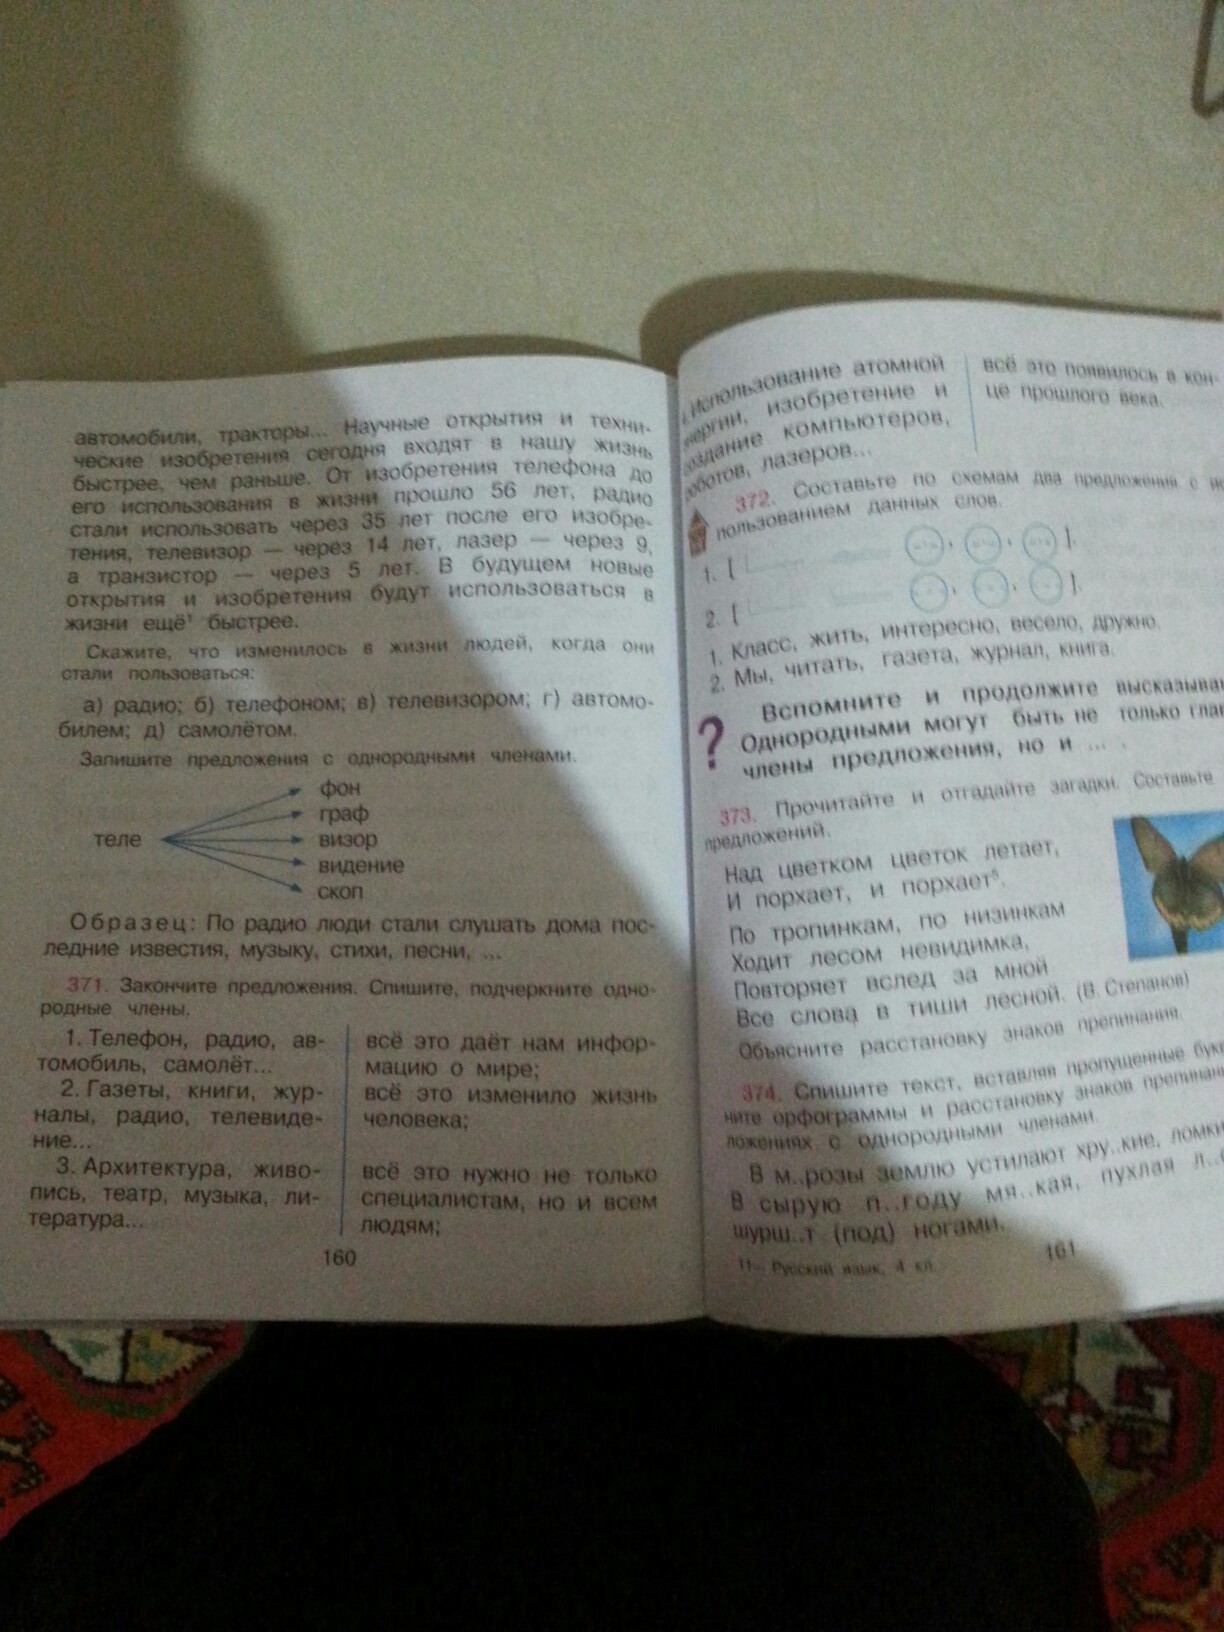 автомобили, тракторы... Научные открытия и техни-
ческие изобретения сегодня входят в нашу жизнь
быстрее, чем раньше. От изобретения телефона до
его использования в жизни прошло 56 лет, радио
стали использовать через 35 лет после его изобре-
тения, телевизор — через 14 лет, лазер — через 9,
а транзистор — через 5 лет. В будущем новые
открытия и изобретения будут использоваться в
жизни ещё¹ быстрее.
Скажите, что изменилось в жизни людей, когда они
стали пользоваться:
а) радио; б) телефоном; в) телевизором; г) автомо-
билем; д) самолётом.
Запишите предложения с однородными членами.
фон
граф
теле визор
видение
скоп
Образец: По радио люди стали слушать дома пос-
ледние известия, музыку, стихи, песни, ...
371. Закончите предложения. Спишите, подчеркните одно-
родные члены.
1. Телефон, радио, ав-
томобиль, самолёт...
2. Газеты, книги, жур-
налы, радио, телевиде-
ние...
3. Архитектура, живо-
пись, театр, музыка, ли-
тература...
всё это даёт нам инфор-
мацию о мире;
всё это изменило жизнь
человека;
всё это нужно не только
специалистам, но и всем
людям;
160
Использование атомной
энергии, изобретение и
создание компьютеров,
роботов, лазеров...
всё это появилось в кон-
це прошлого века.
372. Составьте по схемам два предложения с ис
пользованием данных слов.
1. [ , , ].
2. [ , , ].
1. Класс, жить, интересно, весело, дружно.
2. Мы, читать, газета, журнал, книга.
? Вспомните и продолжите высказыван
Однородными могут быть не только глав
члены предложения, но и ... .
373. Прочитайте и отгадайте загадки. Составьте
предложений.
Над цветком цветок летает,
И порхает, и порхает⁵.
По тропинкам, по низинкам
Ходит лесом невидимка,
Повторяет вслед за мной
Все слова в тиши лесной. (В. Степанов)
Объясните расстановку знаков препинания.
374. Спишите текст, вставляя пропущенные букв
ните орфограммы и расстановку знаков препинан
ложениях с однородными членами.
В м..розы землю устилают хру..кие, ломки
В сырую п..году мя..кая, пухлая л..
шурш..т (под) ногами.
11– Русский язык, 4 кл.
161